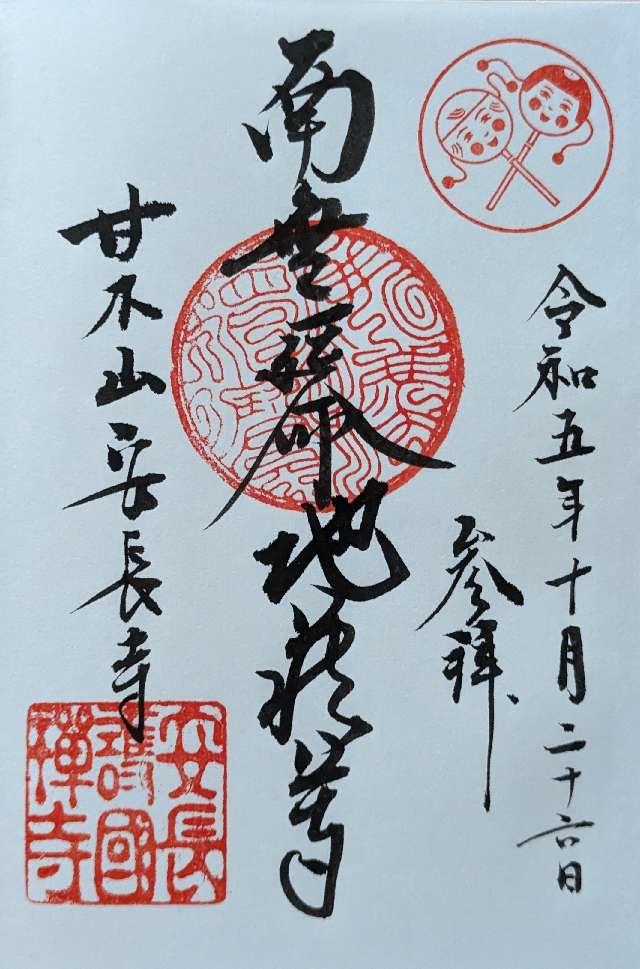 令和五年十月二十六日
参拝
南無延命地蔵菩薩
甘木山安長寺
安長
護國
禅寺